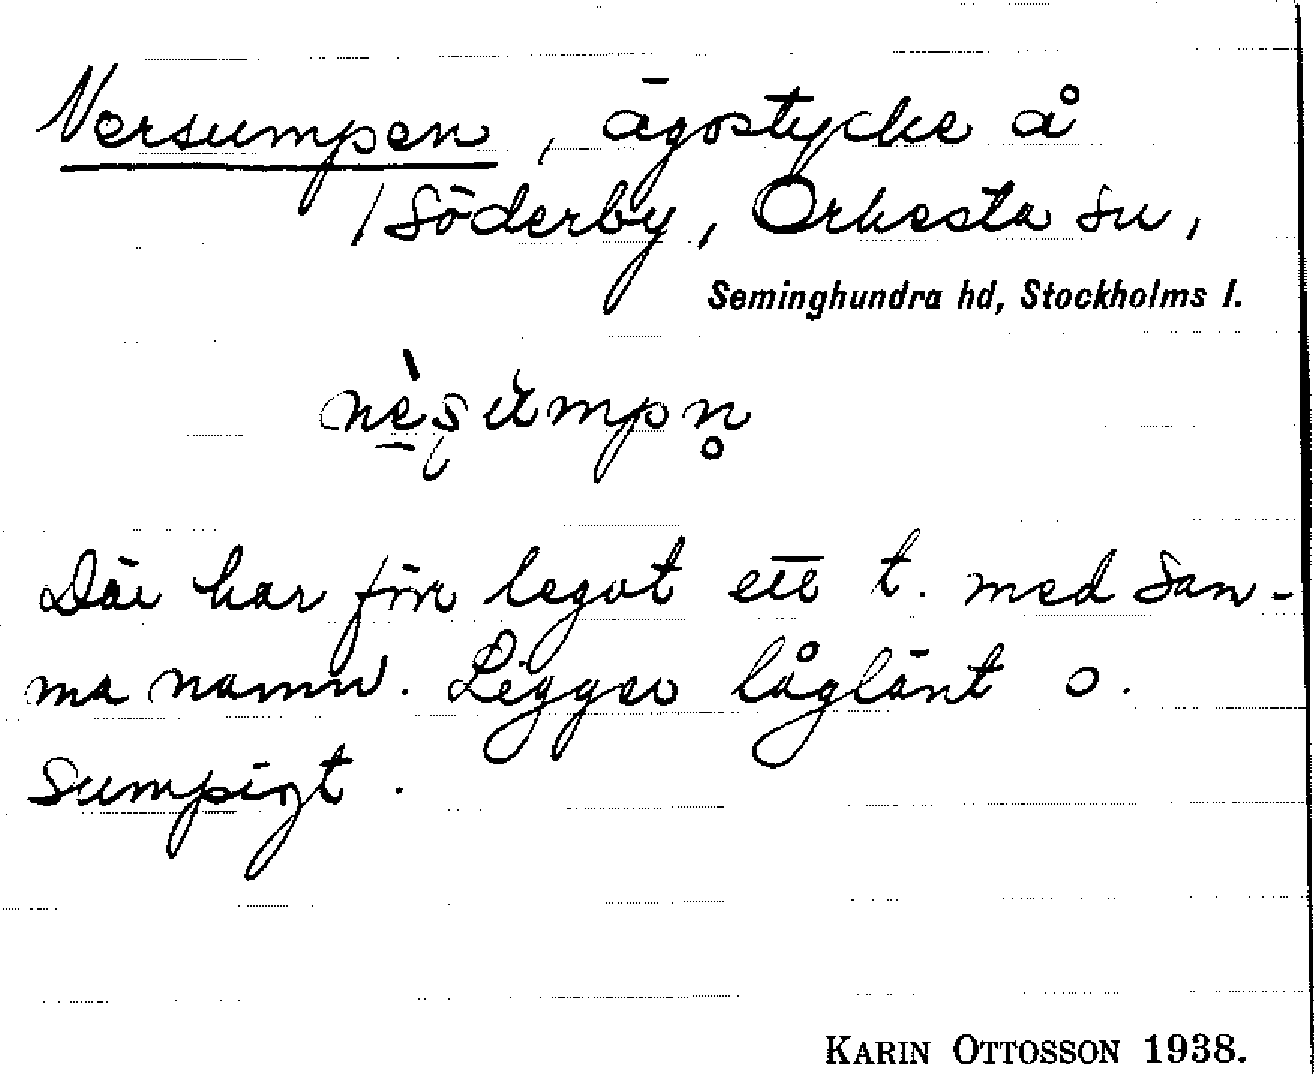 Nersumpen, ägostycke å
Söderby, Orkesta sn,
Seminghundra hd, Stockholms l.
Där har förr legat ett t. med sam-
ma namn. Ligger låglänt o.
sumpigt.
KARIN OTTOSSON 1938.